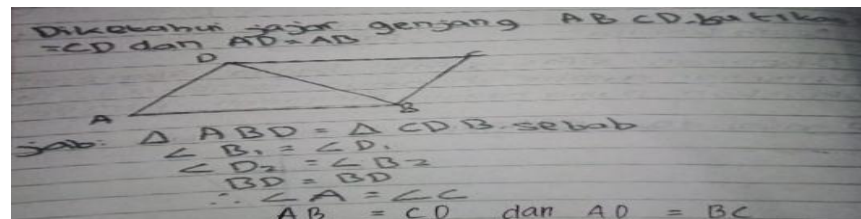 Diketahui jajar genjang ABCD. buktikan
= CD dan AD = AB
D
C
A
B
jab: △ ABD = △ CDB. sebab
∠ B₁ = ∠ D₁
∠ D₂ = ∠ B₂
BD = BD
∴ ∠ A = ∠ C
AB = CD dan AD = BC